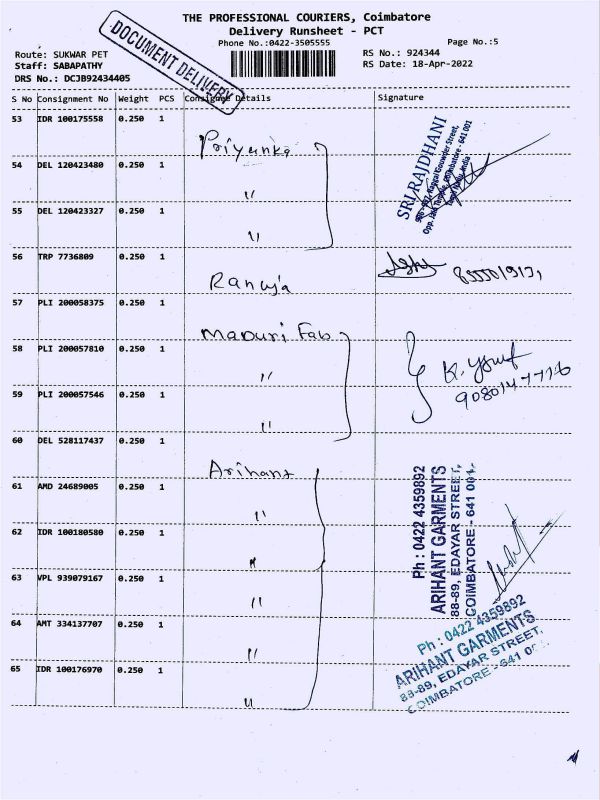 THE PROFESSIONAL COURIERS, Coimbatore
Delivery Runsheet - PCT
Phone No.:0422-3505555
Page No.:5
Route: SUKWAR PET
Staff: SABAPATHY
DRS No.: DCJB92434405
RS No.: 924344
RS Date: 18-Apr-2022
DOCUMENT DELIVERY
S No Consignment No Weight PCS Consignee Details Signature
53 IDR 100175558 0.250 1 Priyanka
54 DEL 120423480 0.250 1 "
55 DEL 120423327 0.250 1 "
SRI RAJDHANI
Coimbatore - 641 001
Tamil Nadu, India
56 TRP 7736809 0.250 1 Ranuja
57 PLI 200058375 0.250 1 Maduri Fab
58 PLI 200057810 0.250 1 "
59 PLI 200057546 0.250 1 "
K. Yusuf
60 DEL 528117437 0.250 1 Arihant
61 AMD 24689005 0.250 1 "
62 IDR 100180580 0.250 1 "
63 VPL 939079167 0.250 1 "
64 AMT 334137707 0.250 1 "
65 IDR 100176970 0.250 1 "
Ph : 0422 4359892
ARIHANT GARMENTS
88-89, EDAYAR STREET,
COIMBATORE - 641 001.
Ph : 0422 4359892
ARIHANT GARMENTS
88-89, EDAYAR STREET,
COIMBATORE - 641 00